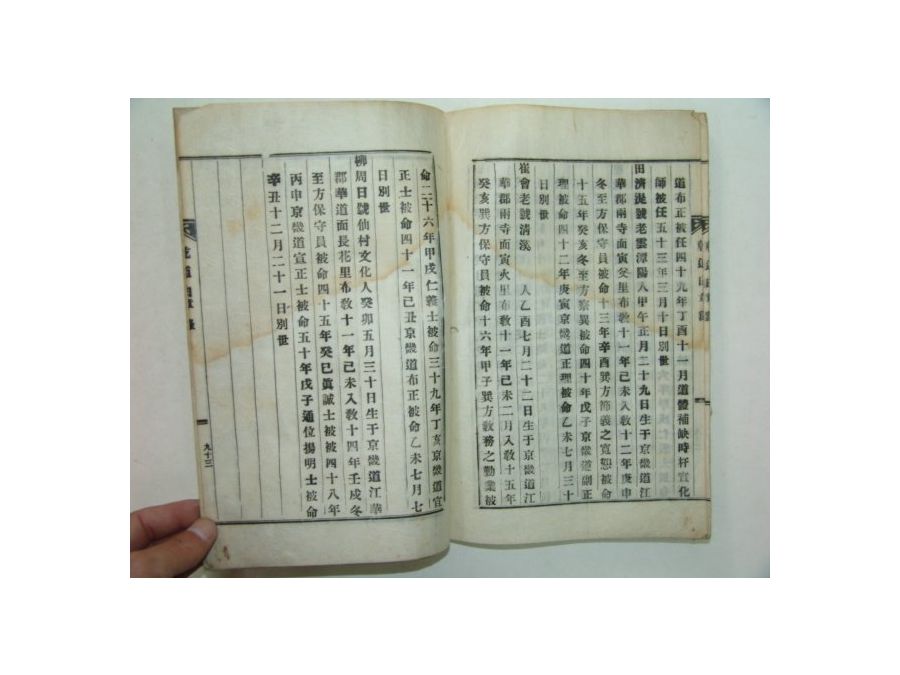 道布正被任四十九年丁酉十一月道體補缺時杆宣化
師被任五十三年三月十日別世
田濟湜號老雲潭陽人甲午正月二十九日生于京畿道江
華郡兩寺面寅火里布教十一年己未入教十二年庚申
冬至方保守員被命十三年辛酉巽方節義之寬恕被命
十五年癸亥冬至方察異被命四十年戊子京畿道副正
理被命四十二年庚寅京畿道正理被命乙未七月三十
日別世
崔會老號清溪 人乙酉七月二十二日生于京畿道江
華郡兩寺面寅火里布教十一年己未二月入教十五年
癸亥巽方保守員被命十六年甲子巽方教務之勤業被
命二十六年甲戌仁義士被命三十九年丁亥京畿道宣
正士被命四十一年己丑京畿道布正被命乙未七月七
日別世
柳周日號仙村文化人癸卯五月三十日生于京畿道江華
郡華道面長花里布教十一年己未入教十四年壬戌冬
至方保守員被命四十五年癸巳眞誠士被被四十八年
丙申京畿道宣正士被命五十年戊子通位揚明士被命
辛丑十二月二十一日別世
九十三